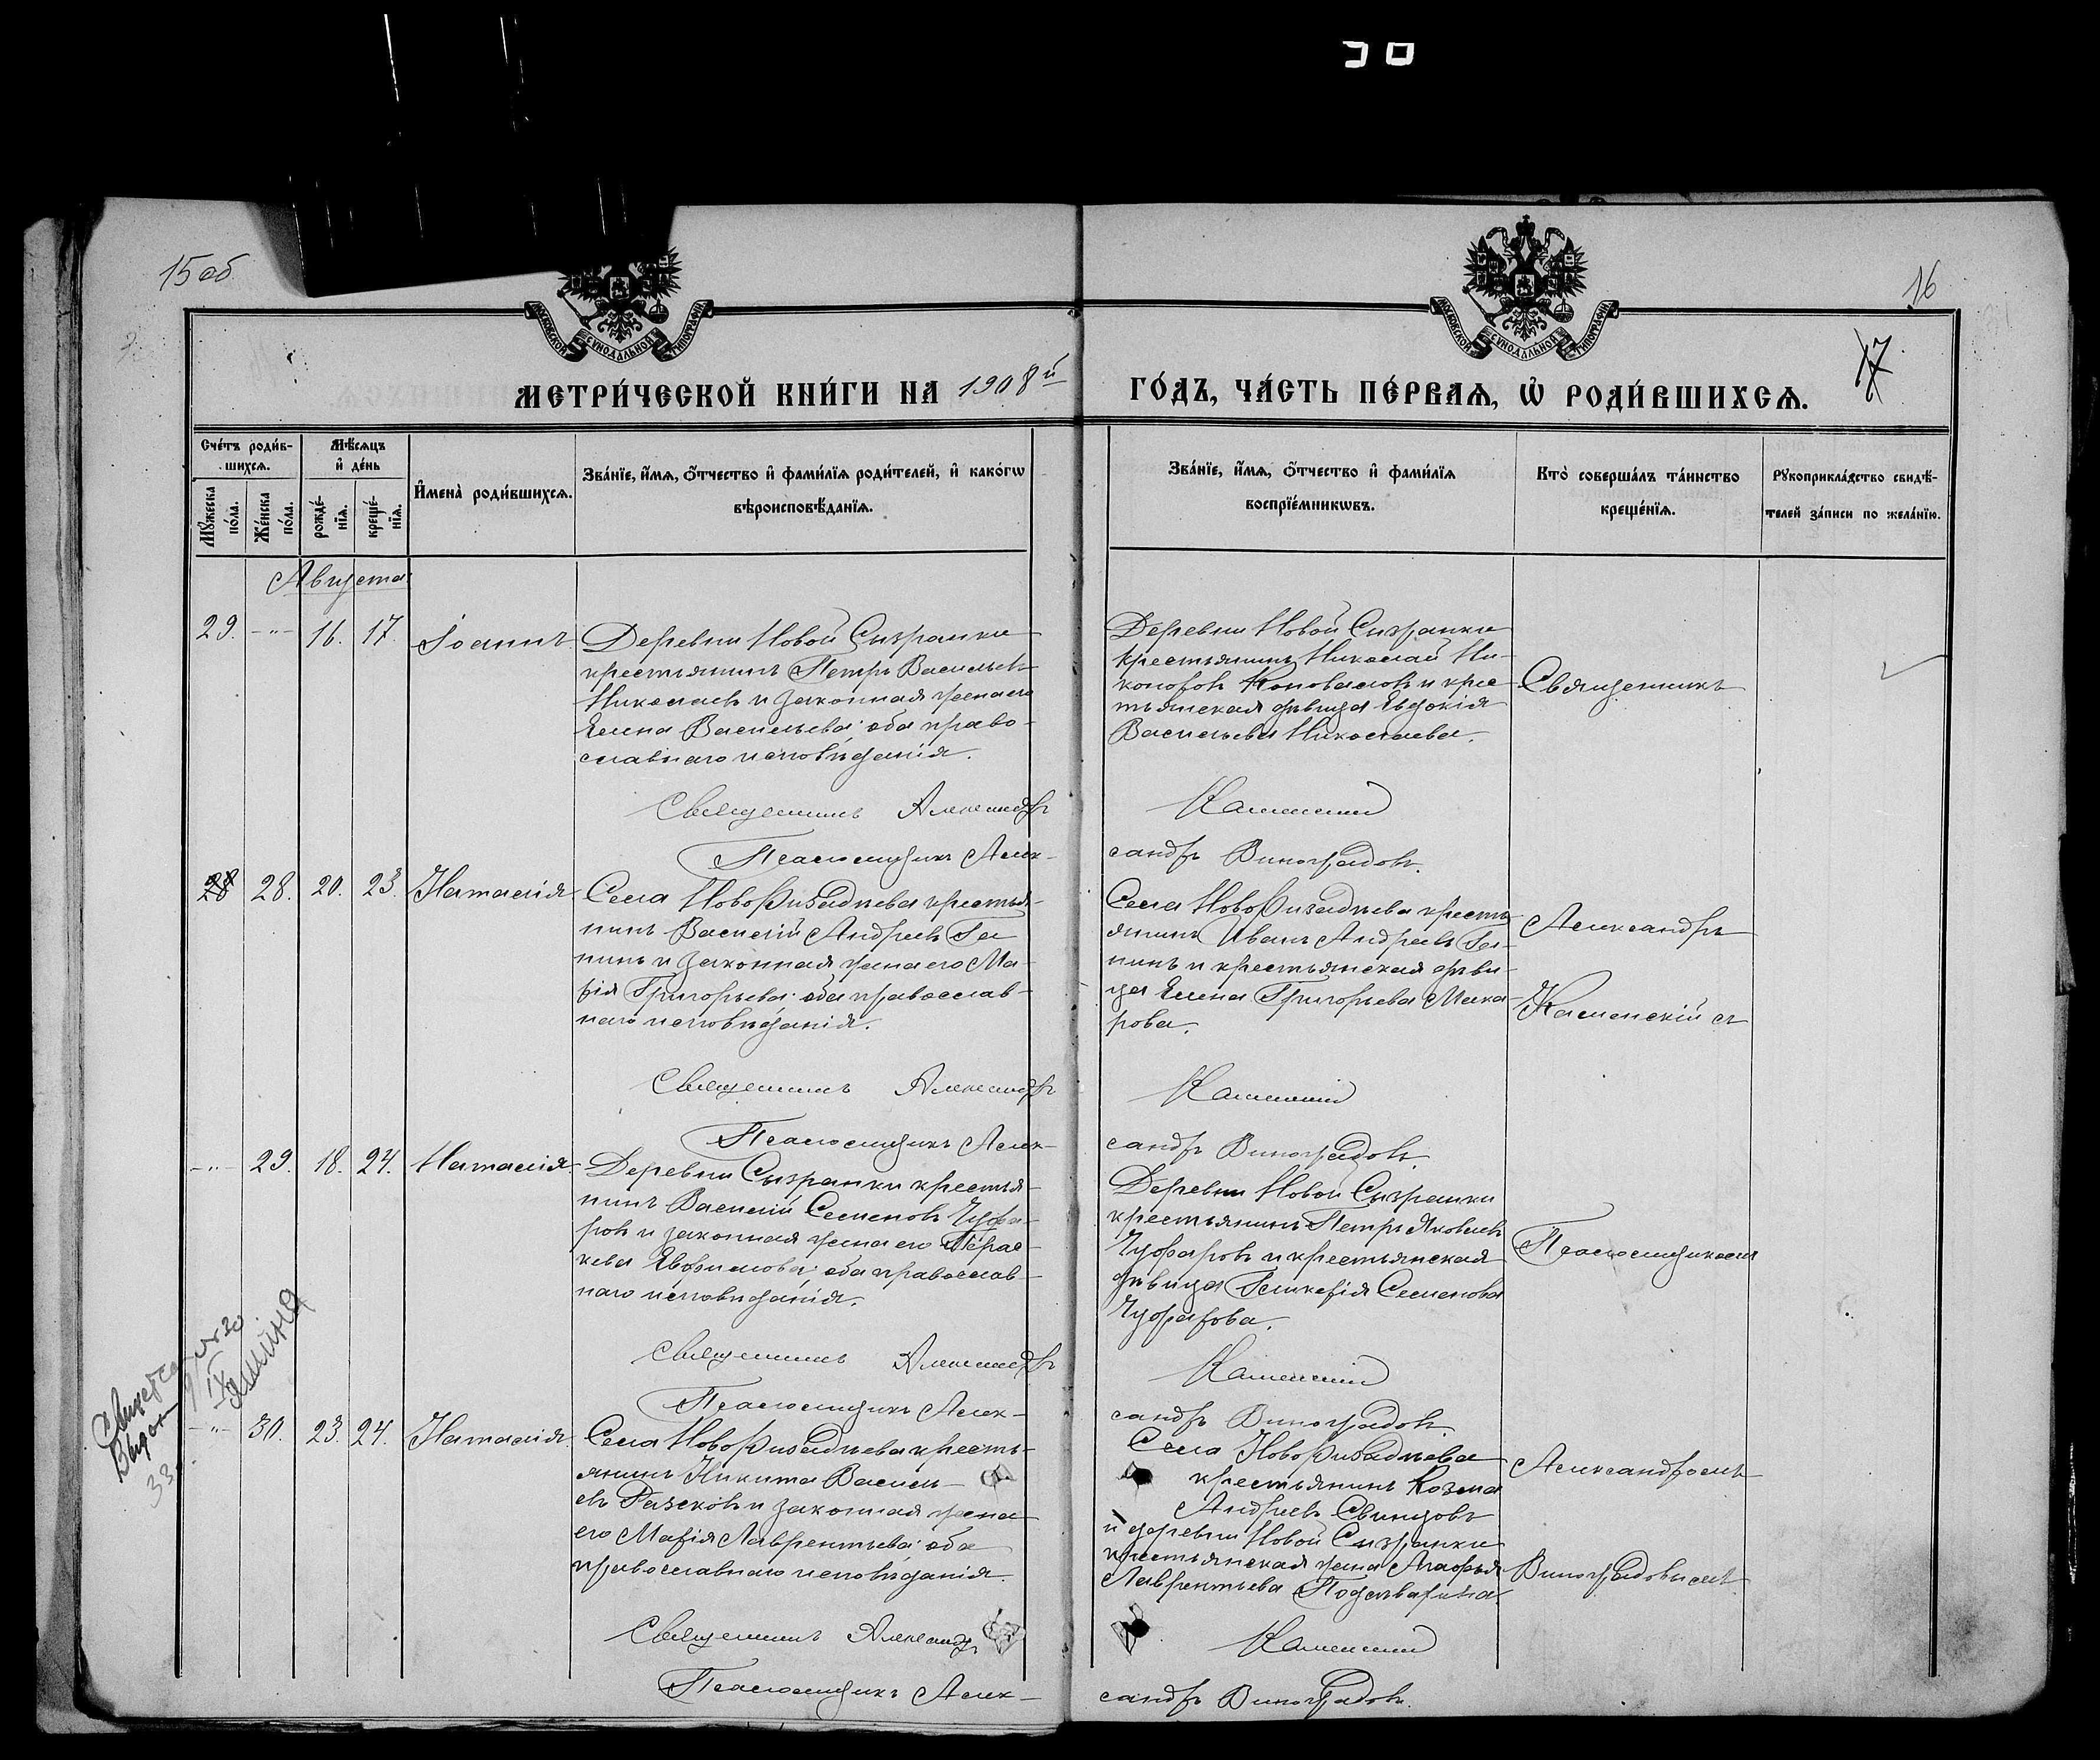 15 об.
16
17
МЕТРИ́ЧЕСКОЙ КНИ́ГИ НА 1908й
ГО́ДЪ, ЧА́СТЬ ПЕ́РВАѦ, Ѡ҆ РОДИ́ВШИХСѦ.
Сче́тъ роди́в-
шихсѧ.
Мѣ́сѧцъ
и҆ де́нь
Мꙋ́жеска
по́ла.
Же́нска
по́ла.
рожде́-
нїѧ.
креще́-
нїѧ.
И҆мена̀ роди́вшихсѧ.
Зва́нїе, и҆́мѧ, ѻ҆́тчество и҆ фами́лїѧ роди́телей, и҆ како́гѡ
вѣроисповѣ́данїѧ.
Зва́нїе, и҆́мѧ, ѻ҆́тчество и҆ фами́лїѧ
воспрїе́мникѡвъ.
Кто̀ соверша́лъ та́инство
креще́нїѧ.
Рꙋкоприкла́дство свидѣ́-
телей за́писи по жела́нїю.
Августа
29. -"- 16. 17. Іоаннъ
Деревни Новой Сызранки
крестьянинъ Петръ Васильевъ
Николаевъ и законная жена его
Елена Васильева; оба право-
славнаго исповѣданія.
Деревни Новой Сызранки
крестьянинъ Николай Ни-
коновъ Коноваловъ и крес
тьянская дѣвица Евдокія
Васильева Николаева.
Священникъ
Священникъ Александръ Каменскій
Псаломщикъ Алек-
сандръ Виноградовъ.
28 28. 20. 23. Наталія
Села Новоризадѣева крестья-
нинъ Василій Андреевъ Га
нинъ и законная жена его Ма-
рія Григорьева; оба православ-
наго исповѣданія.
Села Новоризадѣева кресть-
янинъ Иванъ Андреевъ Га-
нинъ и крестьянская дѣви-
ца Елена Григорьева Мака-
рова.
Александръ
Каменскій съ
Священникъ Александръ Каменскій
Псаломщикъ Алек-
сандръ Виноградовъ.
-"- 29. 18. 24. Наталія
Деревни Сызранки крестья-
нинъ Василій Семеновъ Чуфа-
ровъ и законная жена его Парас-
кева Евфимова; оба православ-
наго исповѣданія.
Деревни Новой Сызранки
крестьянинъ Петръ Яковлевъ
Чуфаровъ и крестьянская
дѣвица Гликерія Семенова
Чуфарова.
Псаломщикомъ
Священникъ Александръ Каменскій
Псаломщикъ Алек-
сандръ Виноградовъ
-"- 30. 23. 24. Наталія
Села Новоризадѣева кресть-
янинъ Никита Василь-
евъ Разсковъ и законная жена
его Марія Лаврентьева; оба
православнаго исповѣданія.
Села Новоризадѣева
крестьянинъ Козма
Андреевъ Свинцовъ
и деревни Новой Сызранки
крестьянская жена Агафья
Лаврентьева
Александромъ
Виноградовымъ
Священникъ Александръ Каменскій
Псаломщикъ Алек-
сандръ Виноградовъ.